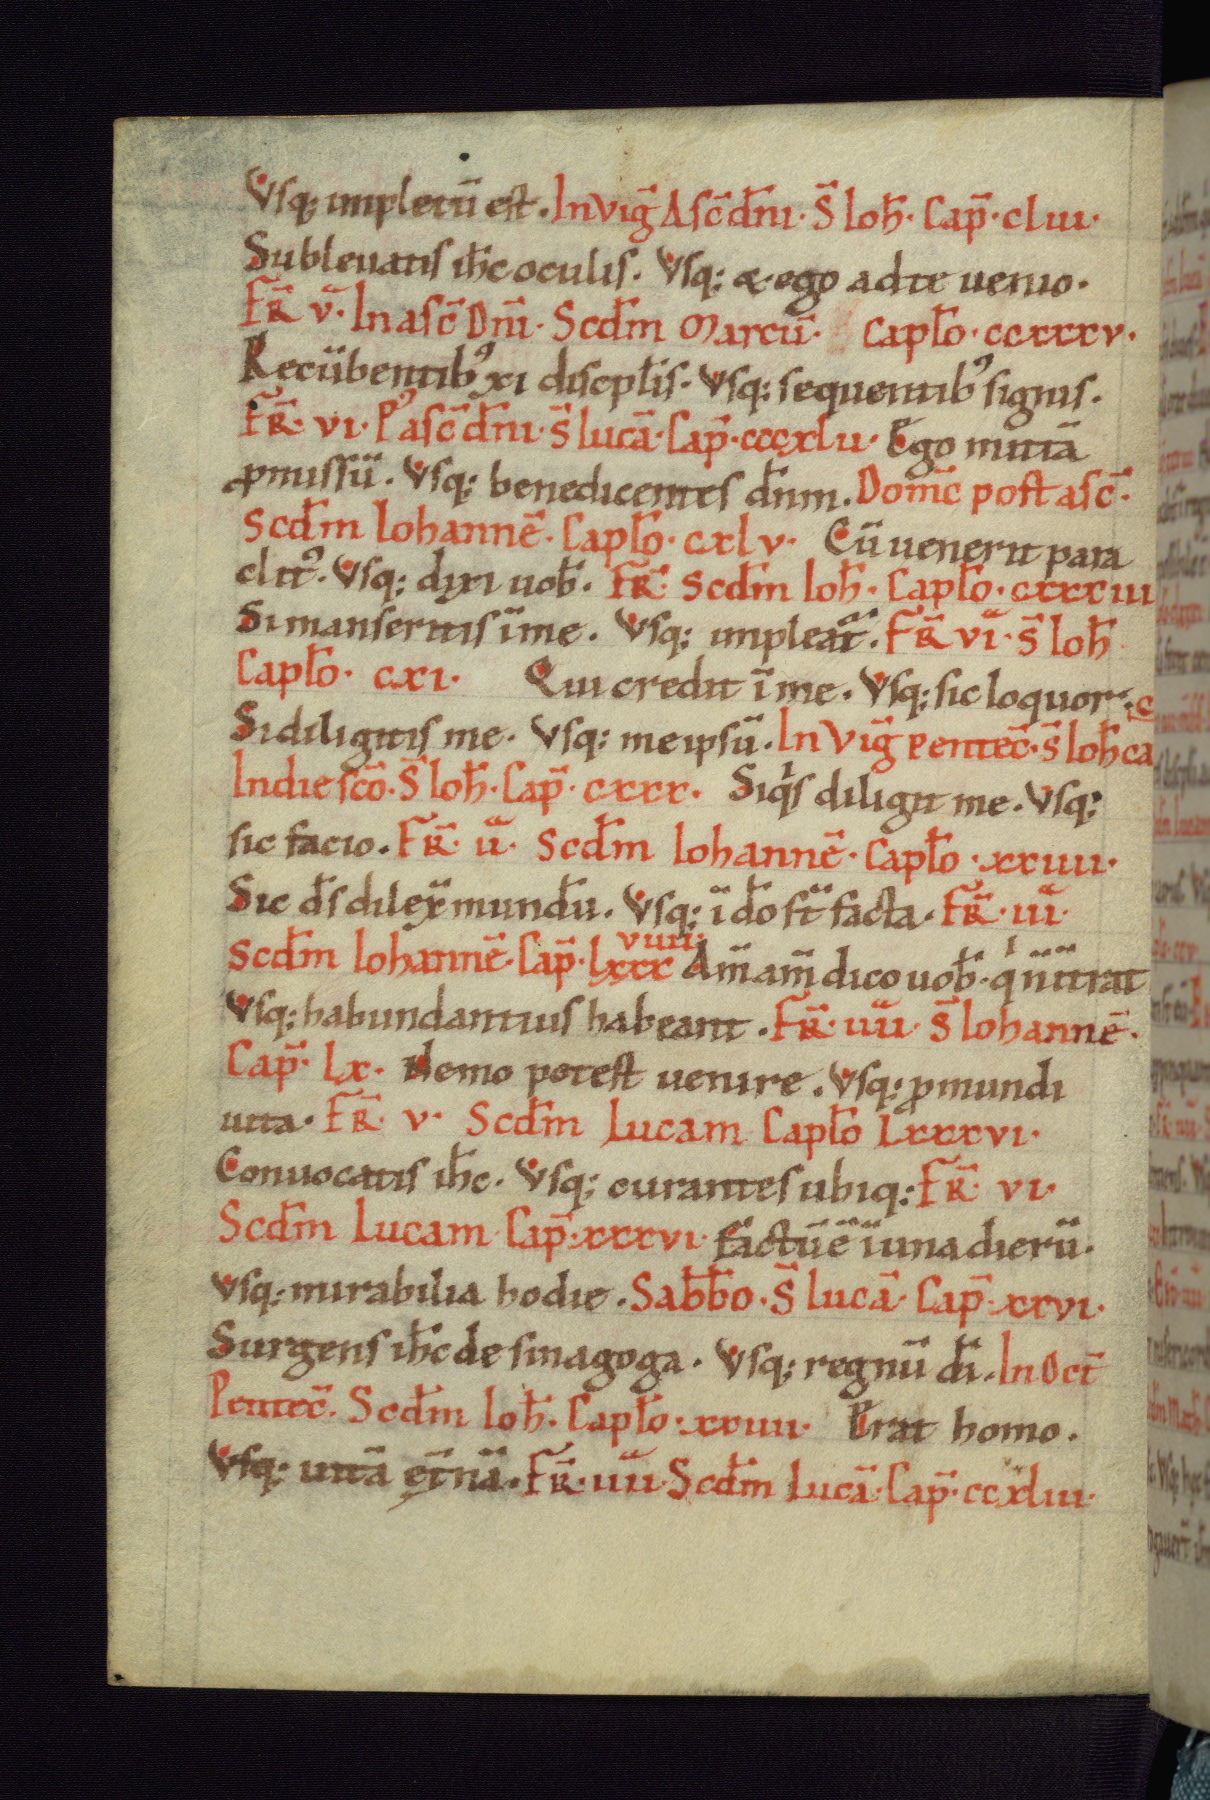 Vsq; impletū est. In vig̅ Asc̅ dn̅i. S̅ Ioh̅. Cap̅. clui.
Subleuatis ih̅c oculis. Vsq; & ego ad te uenio.
Fr̅ v. In asc̅ Dn̅i. Scd̅m Marcū. Caplo̅. ccxxxv.
Recūbentib⁹ xi discplis̅. Vsq; sequentib⁹ signis.
Fr̅. vi. P⁹ asc̅ dn̅i. S̅ lucā. Cap̅. cccxlii. Ego mittā
ꝓmissū. Vsq; benedicentes dn̅m. Domc̅ post asc̅.
Scd̅m Iohannē. Caplo̅. cxlv. Cū uenerit para
clit⁹. Vsq; dixi uob̅. Fr̅ Scd̅m Ioh̅. Caplo̅. cxxxiii
Si manseritis ī me. Vsq; impleat̅. Fr̅ vi. S̅ Ioh̅
Caplo̅. cxi. Qui credit ī me. Vsq; sic loquor. c
Si diligitis me. Vsq; meipsū. In Vig̅ Pentec̅. S̅ Ioh̅ ca
In die sco̅. S̅ Ioh̅. Cap̅. cxxx. Siqͥs diligit me. Vsq;
sic facio. Fr̅. ii. Scd̅m Iohannē. Caplo̅. xxiiii.
Sic ds̅ dilex̅ mundu̅. Vsq; ī do̅ st̅ facta. Fr̅. iii.
Scd̅m Iohannē. Cap̅. lxxx viiii. Am̅ am̅ dico uob̅. qͥ n̅ ītrat
Vsq; habundantius habeant. Fr̅. iiii. S̅ Iohannē.
Cap̅. lx. Nemo potest uenire. Vsq; ꝓ mundi
uita. Fr̅. v. Scd̅m Lucam Caplo̅ Lxxxvi.
Conuocatis ih̅c. Vsq; curantes ubiq; Fr̅ vi.
Scd̅m Lucam. Cap̅. xxxvi. factū ē ī una dierū.
Vsq; mirabilia hodie. Sabb̅o. S̅ lucā. Cap̅. xxvi.
Surgens ih̅c de sinagoga. Vsq; regnū di̅. In Oct̅
Pentec̅. Scd̅m Ioh̅. Caplo̅. xxiiii. Erat homo.
Vsq; uitā et̅nā. Fr̅. iiii. Scd̅m Lucā. Cap̅. ccxliii.